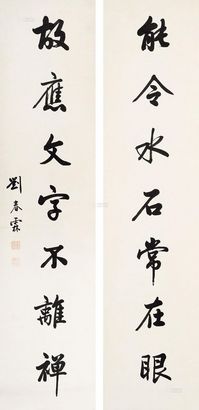 能令水石常在眼
故應文字不離禪
劉春霖